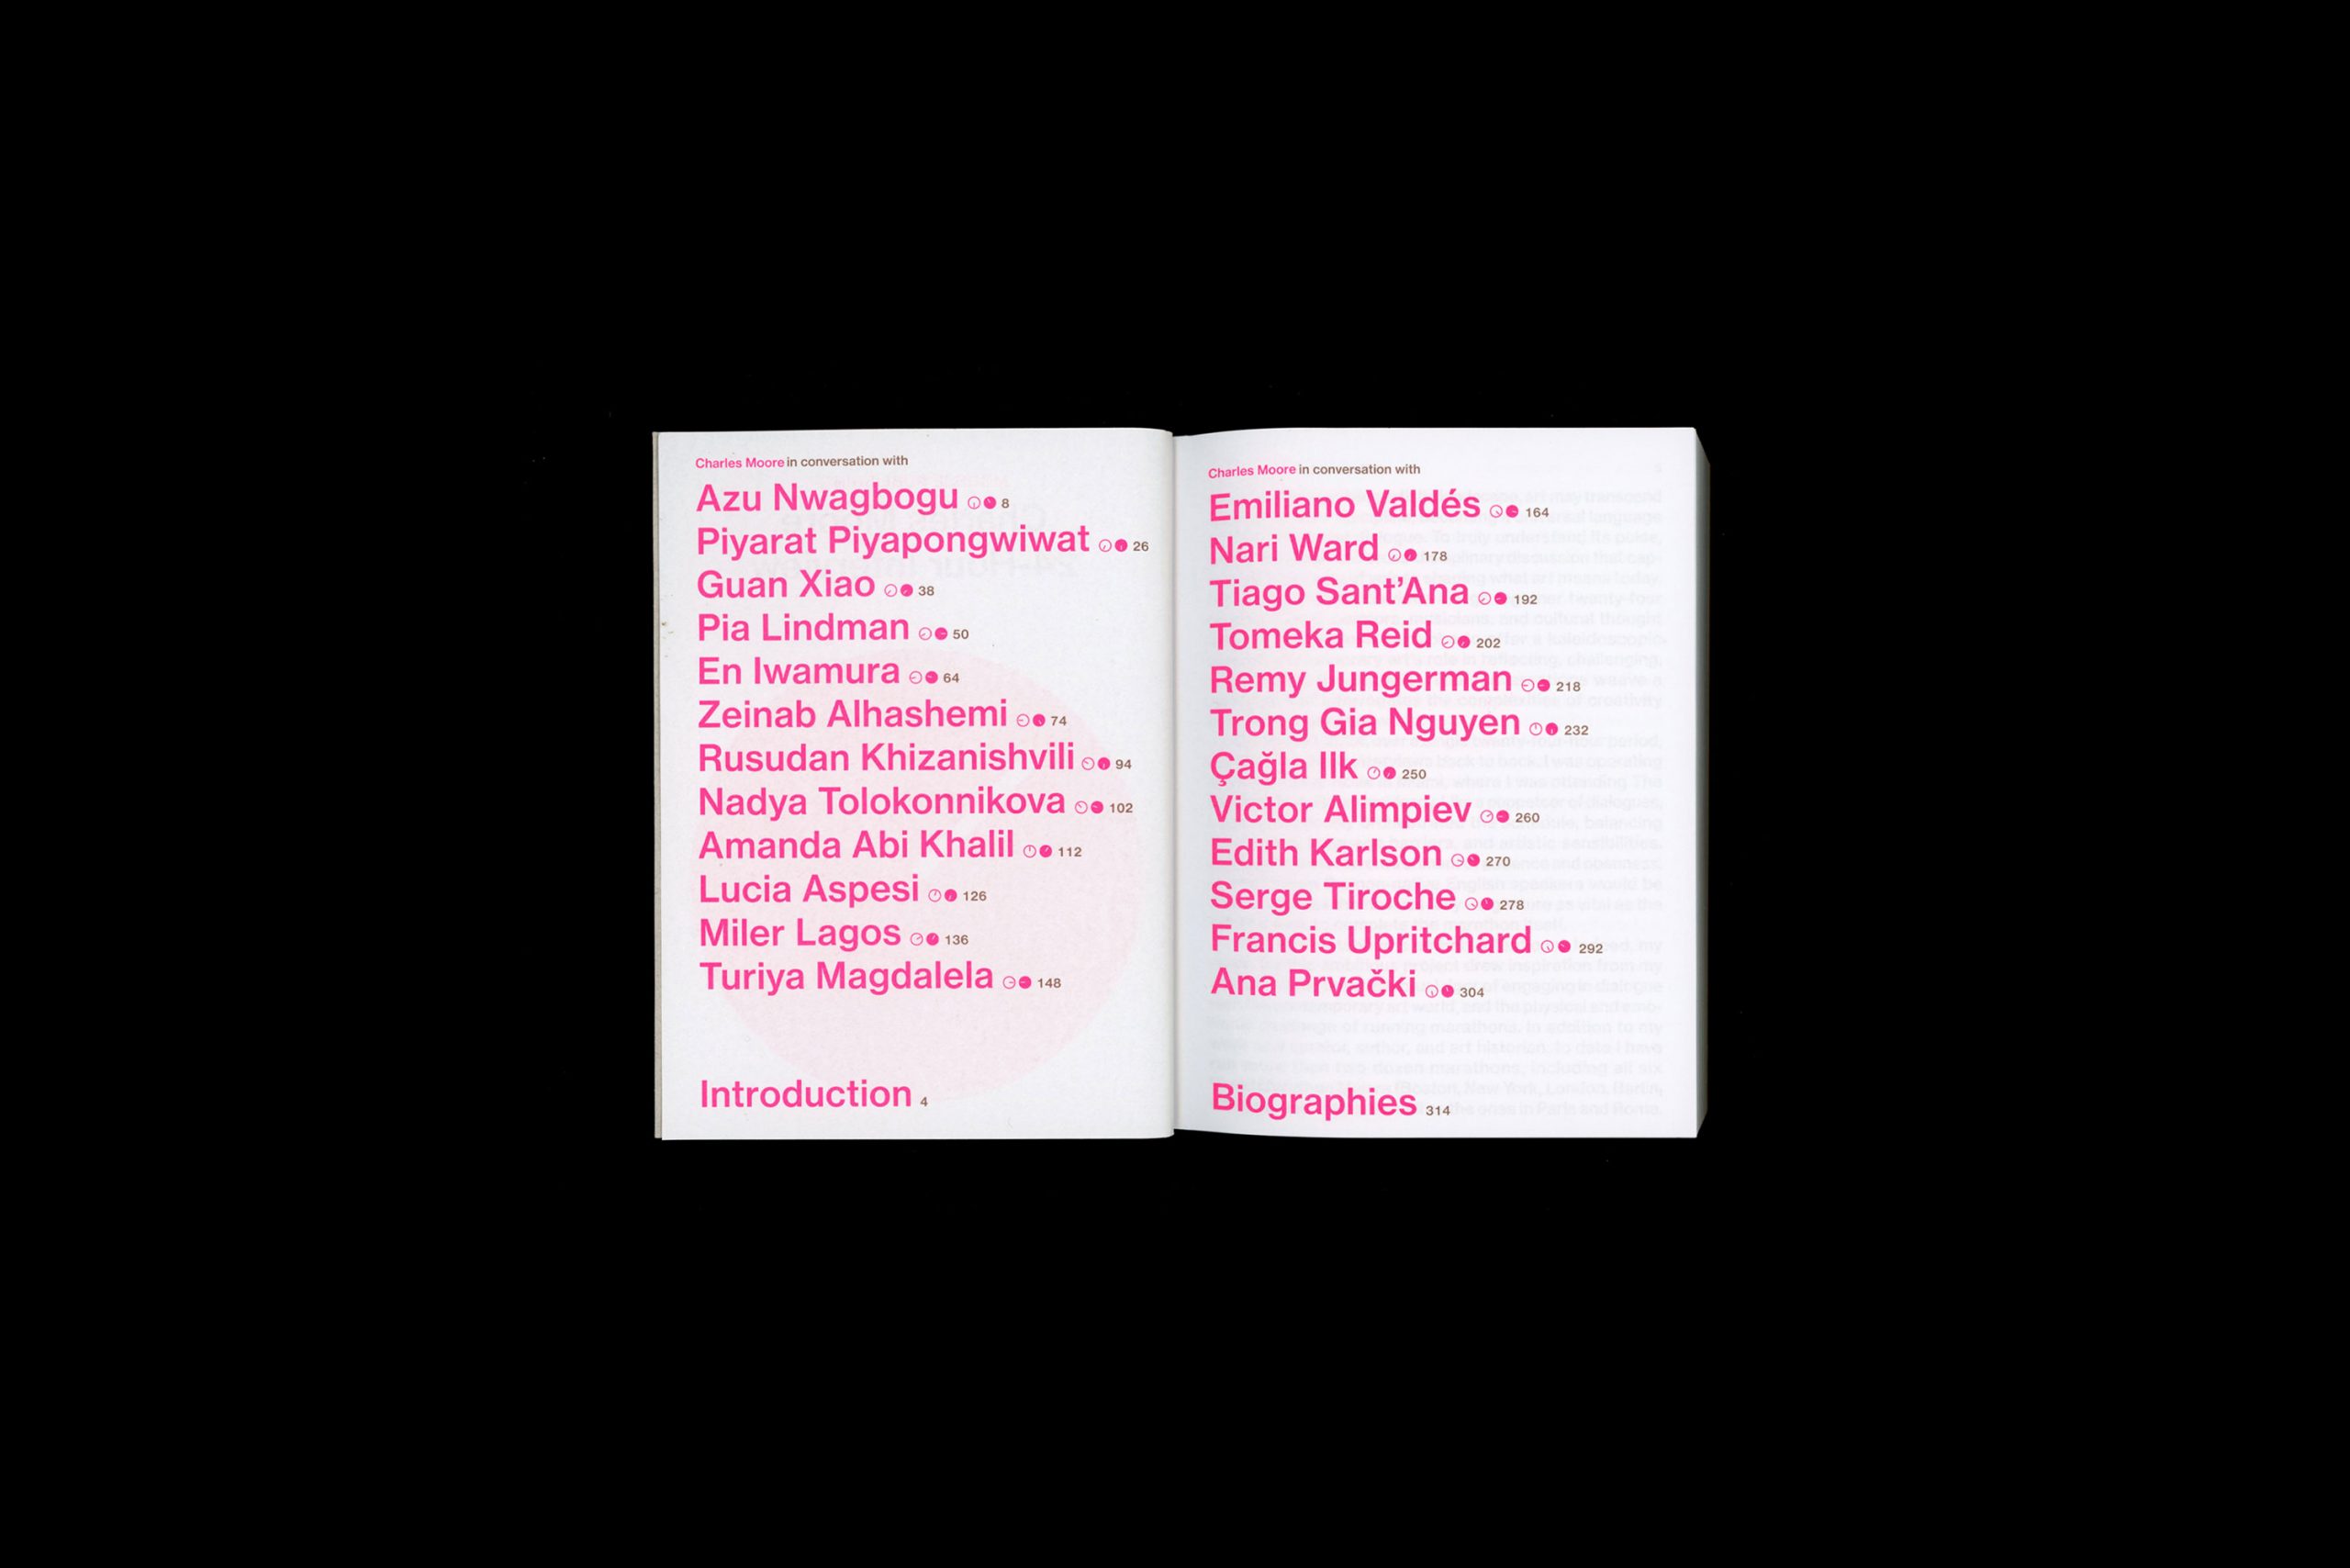 Charles Moore in conversation with
Azu Nwagbogu 8
Piyarat Piyapongwiwat 26
Guan Xiao 38
Pia Lindman 50
En Iwamura 64
Zeinab Alhashemi 74
Rusudan Khizanishvili 94
Nadya Tolokonnikova 102
Amanda Abi Khalil 112
Lucia Aspesi 126
Miler Lagos 136
Turiya Magdalela 148
Introduction 4
Charles Moore in conversation with
Emiliano Valdés 164
Nari Ward 178
Tiago Sant’Ana 192
Tomeka Reid 202
Remy Jungerman 218
Trong Gia Nguyen 232
Çağla Ilk 250
Victor Alimpiev 260
Edith Karlson 270
Serge Tiroche 278
Francis Upritchard 292
Ana Prvački 304
Biographies 314